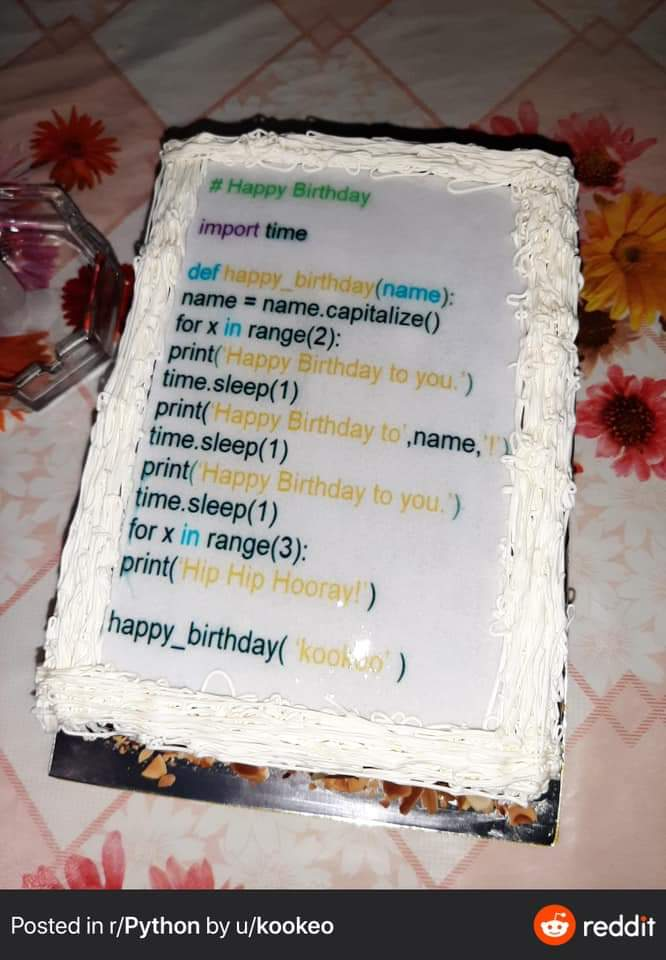 # Happy Birthday
import time
def happy_birthday(name):
name = name.capitalize()
for x in range(2):
print('Happy Birthday to you.')
time.sleep(1)
print('Happy Birthday to',name,'!')
time.sleep(1)
print('Happy Birthday to you.')
time.sleep(1)
for x in range(3):
print('Hip Hip Hooray!')
happy_birthday( 'kookeo' )
Posted in r/Python by u/kookeo
reddit